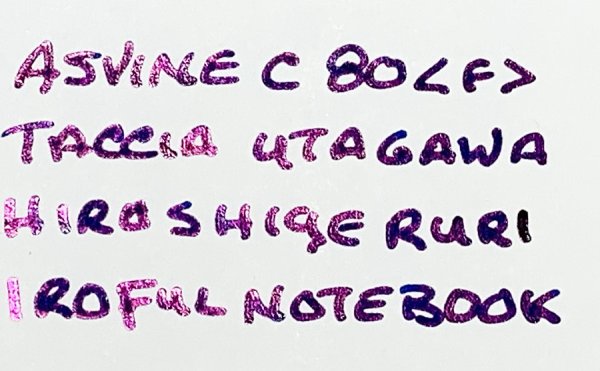 ASVINE C 80<F>
TACCIA UTAGAWA
HIROSHIGE RURI
IROFUL NOTEBOOK